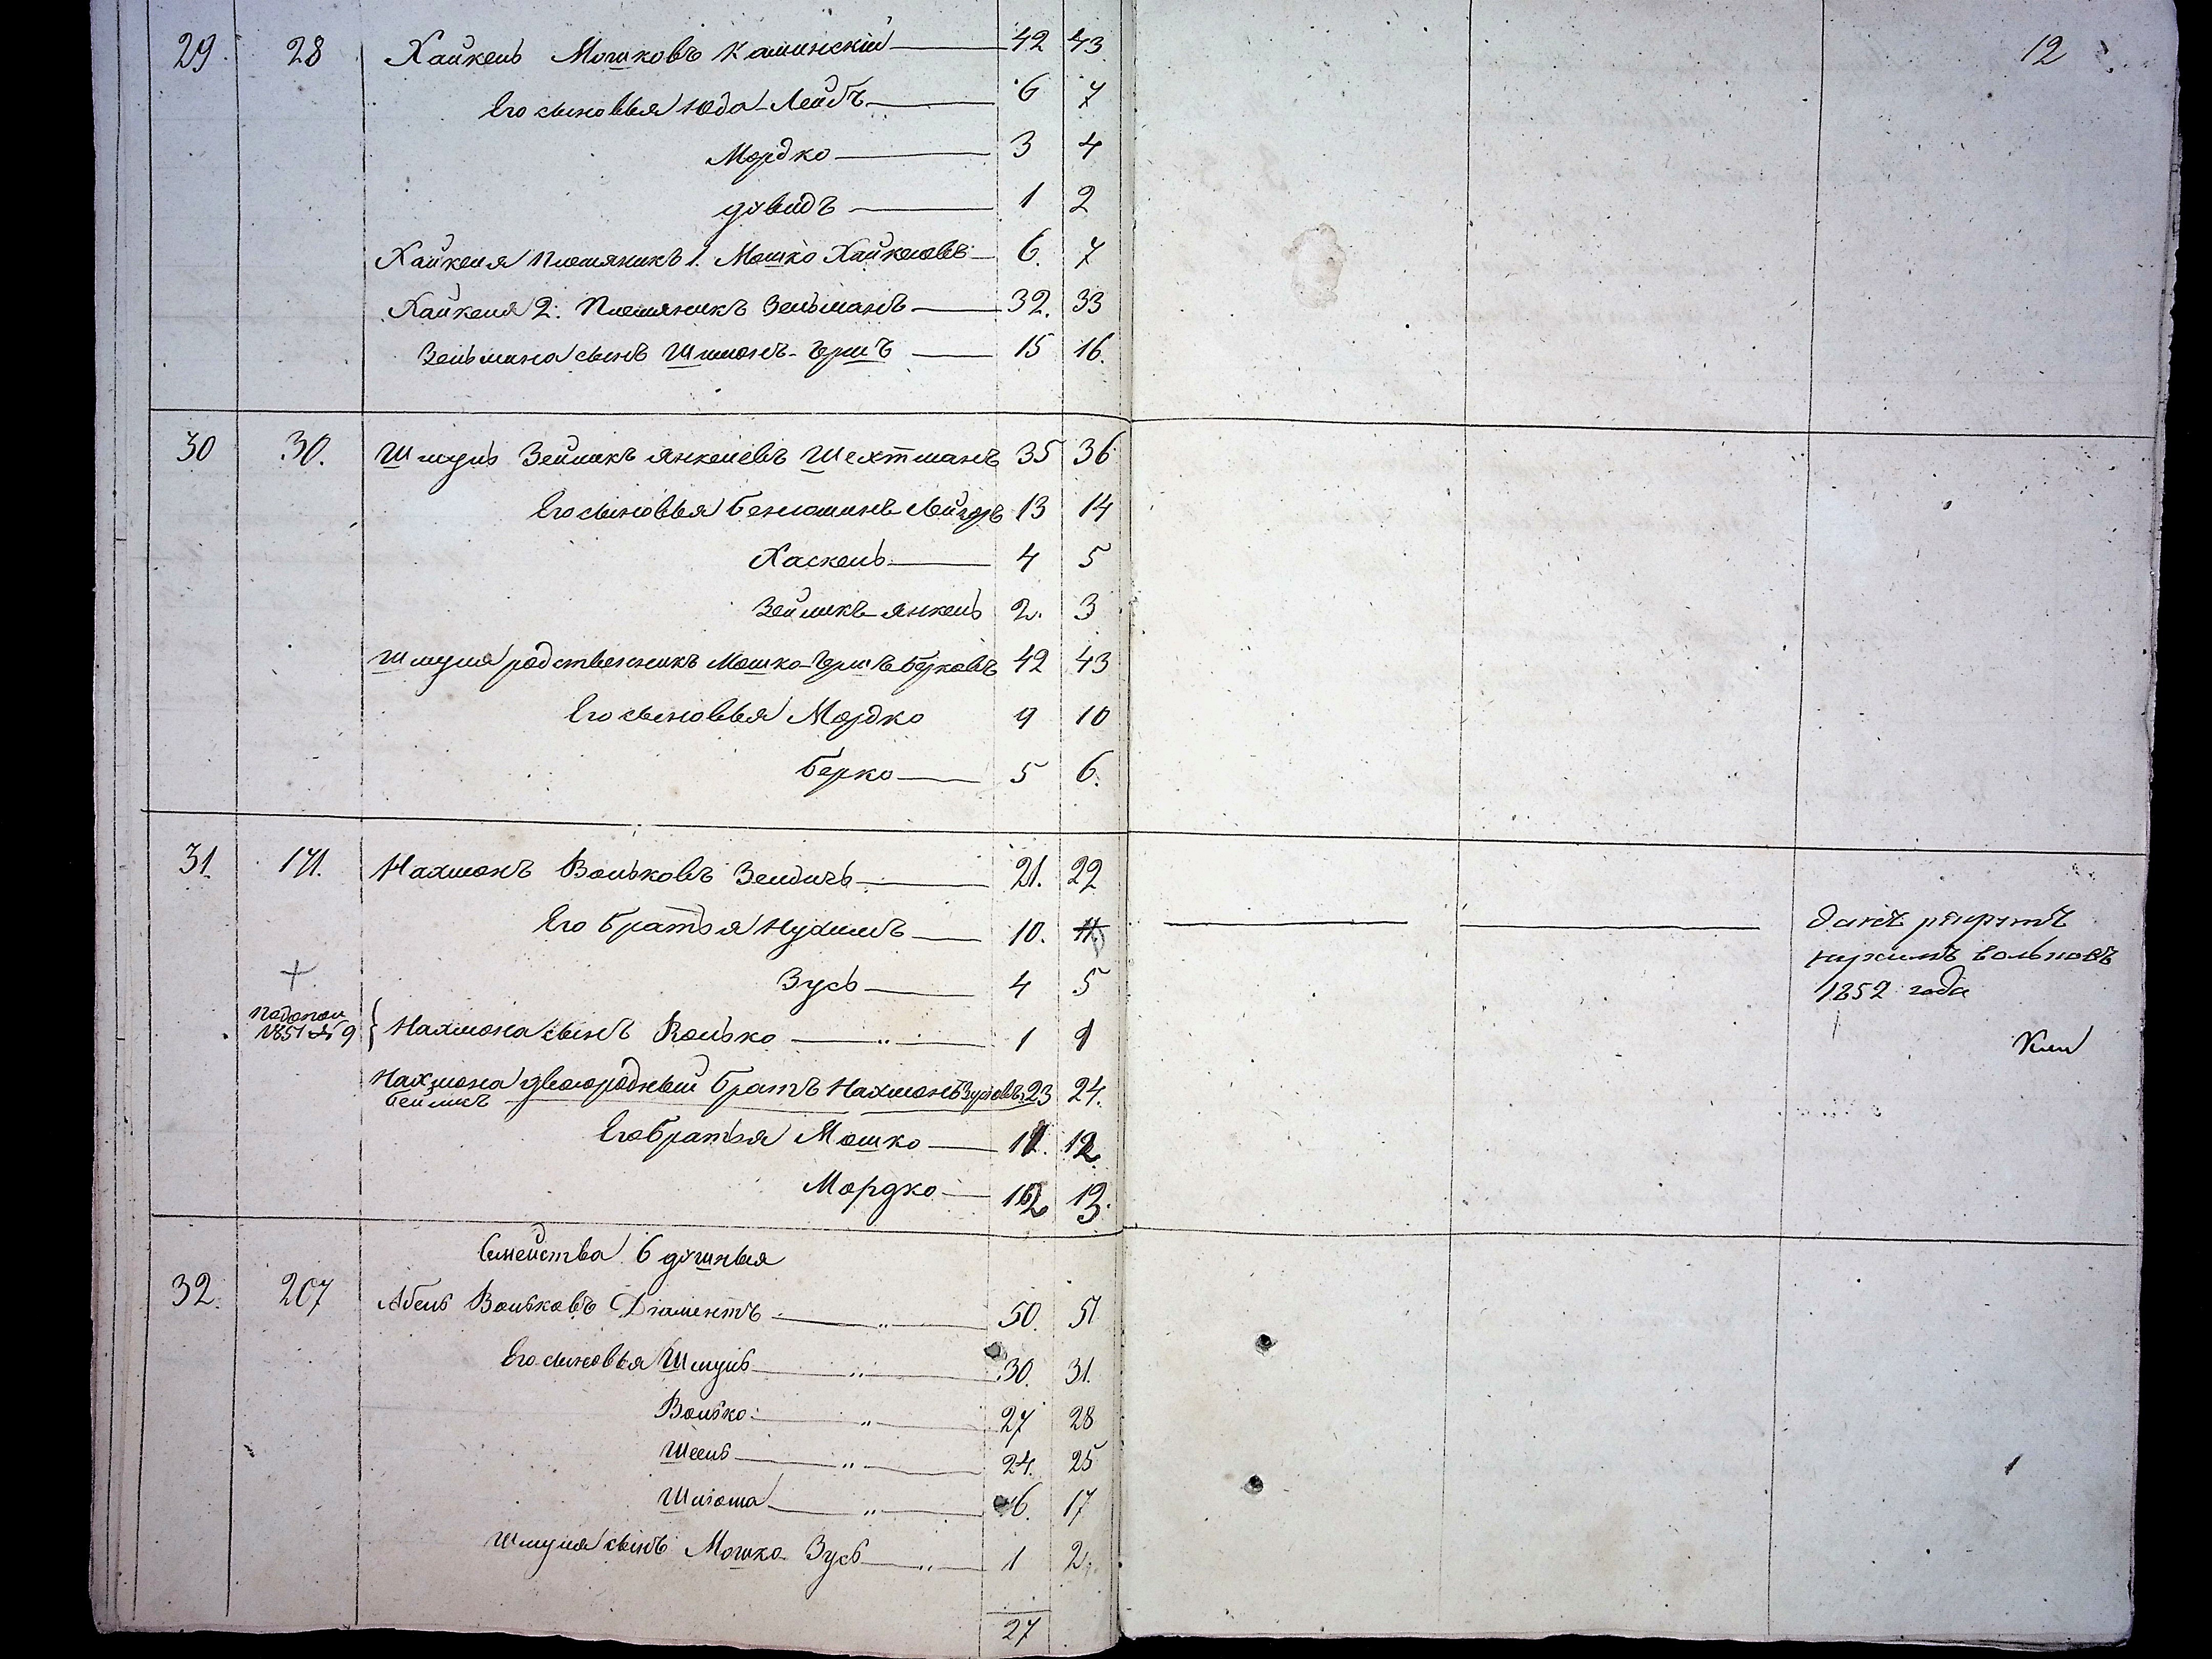 12
29. 28 Хайкель Мошковъ Каминскій 42 43
Его сыновья Юда-Лейбъ 6 7
Мордко 3 4
Дувидъ 1 2
Хайкеля племяникъ 1. Мошко Хайкеловъ 6. 7
Хайкеля 2. племяникъ Зельманъ 32. 33
Зельмана сынъ Шимонъ-Гершъ 15 16.
30 30. Шмуль Зейликъ Янкелевъ Шехтманъ 35 36
Его сыновья Беніоминъ Лейзоръ 13 14
Хаскель 4 5
Зейликъ Янкель 2. 3
Шмуля родственникъ Мошко-Гершъ Берковъ 42 43
Его сыновья Мордко 9 10
Берко 5 6.
31. 171. Нахманъ Вольковъ Зендичъ 21. 22
Его братья Нухимъ 10. 11 данъ рекрутъ
нухимъ вольковъ
Зусь 4 5 1852 года
1851 № 9 Нахмона сынъ Волько 1 1
Нахмона двоюродный братъ Нахмонъ Зусовъ 23 24.
Бейликъ
Его братья Мошко 11. 12.
Мордко 12 13.
Семейства 6 душныя
32. 207 Абель Вольковъ Діаментъ 50. 51
Его сыновья Шмуль 30. 31.
Волько 27 28
Шеель 24. 25
Шліома 16. 17
Шмуля сынъ Мошко Зусь 1 2.
27